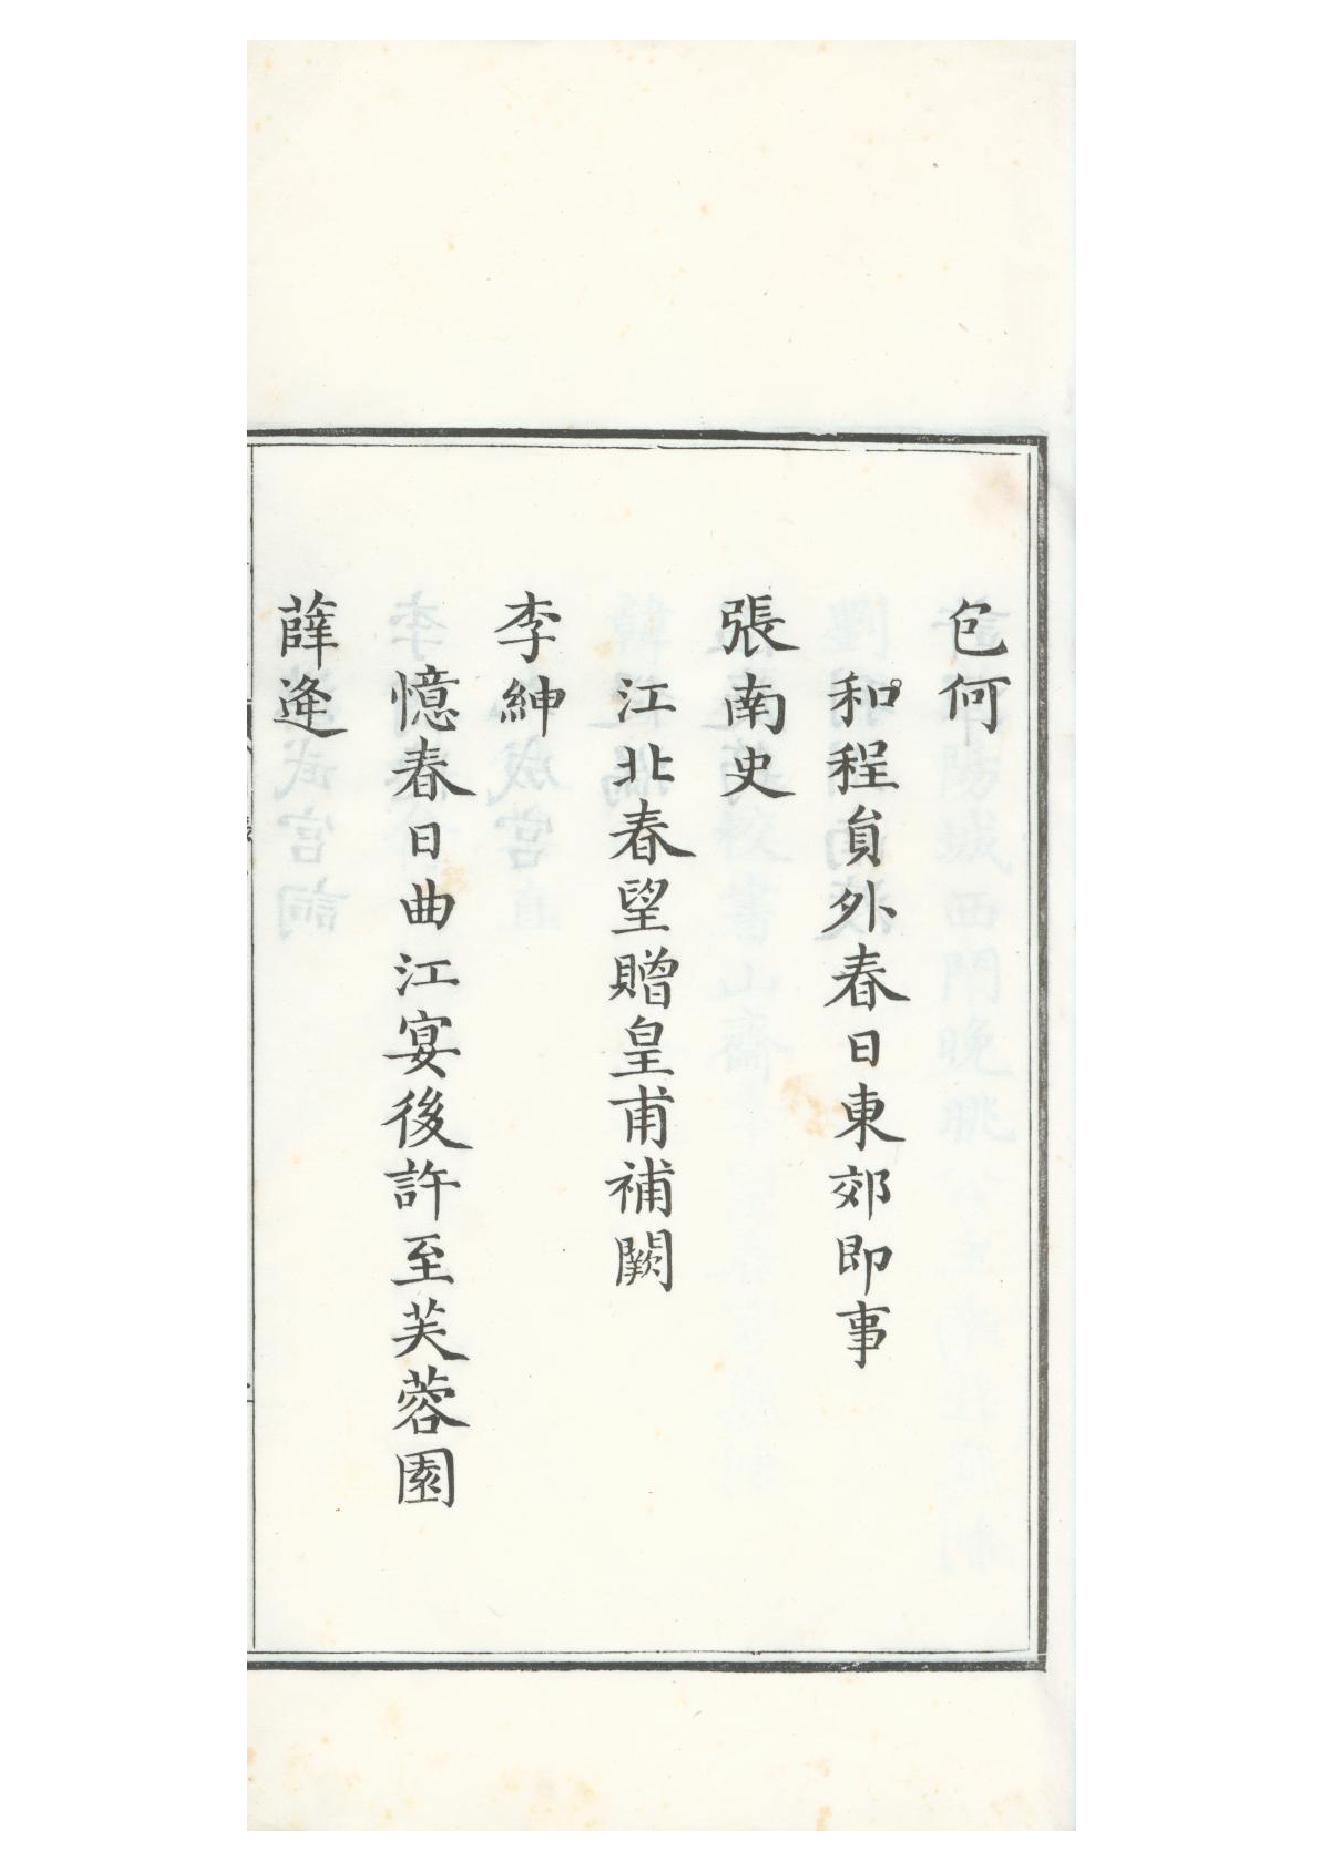 包何
和程員外春日東郊即事
張南史
江北春望贈皇甫補闕
李紳
憶春日曲江宴後許至芙蓉園
薛逢